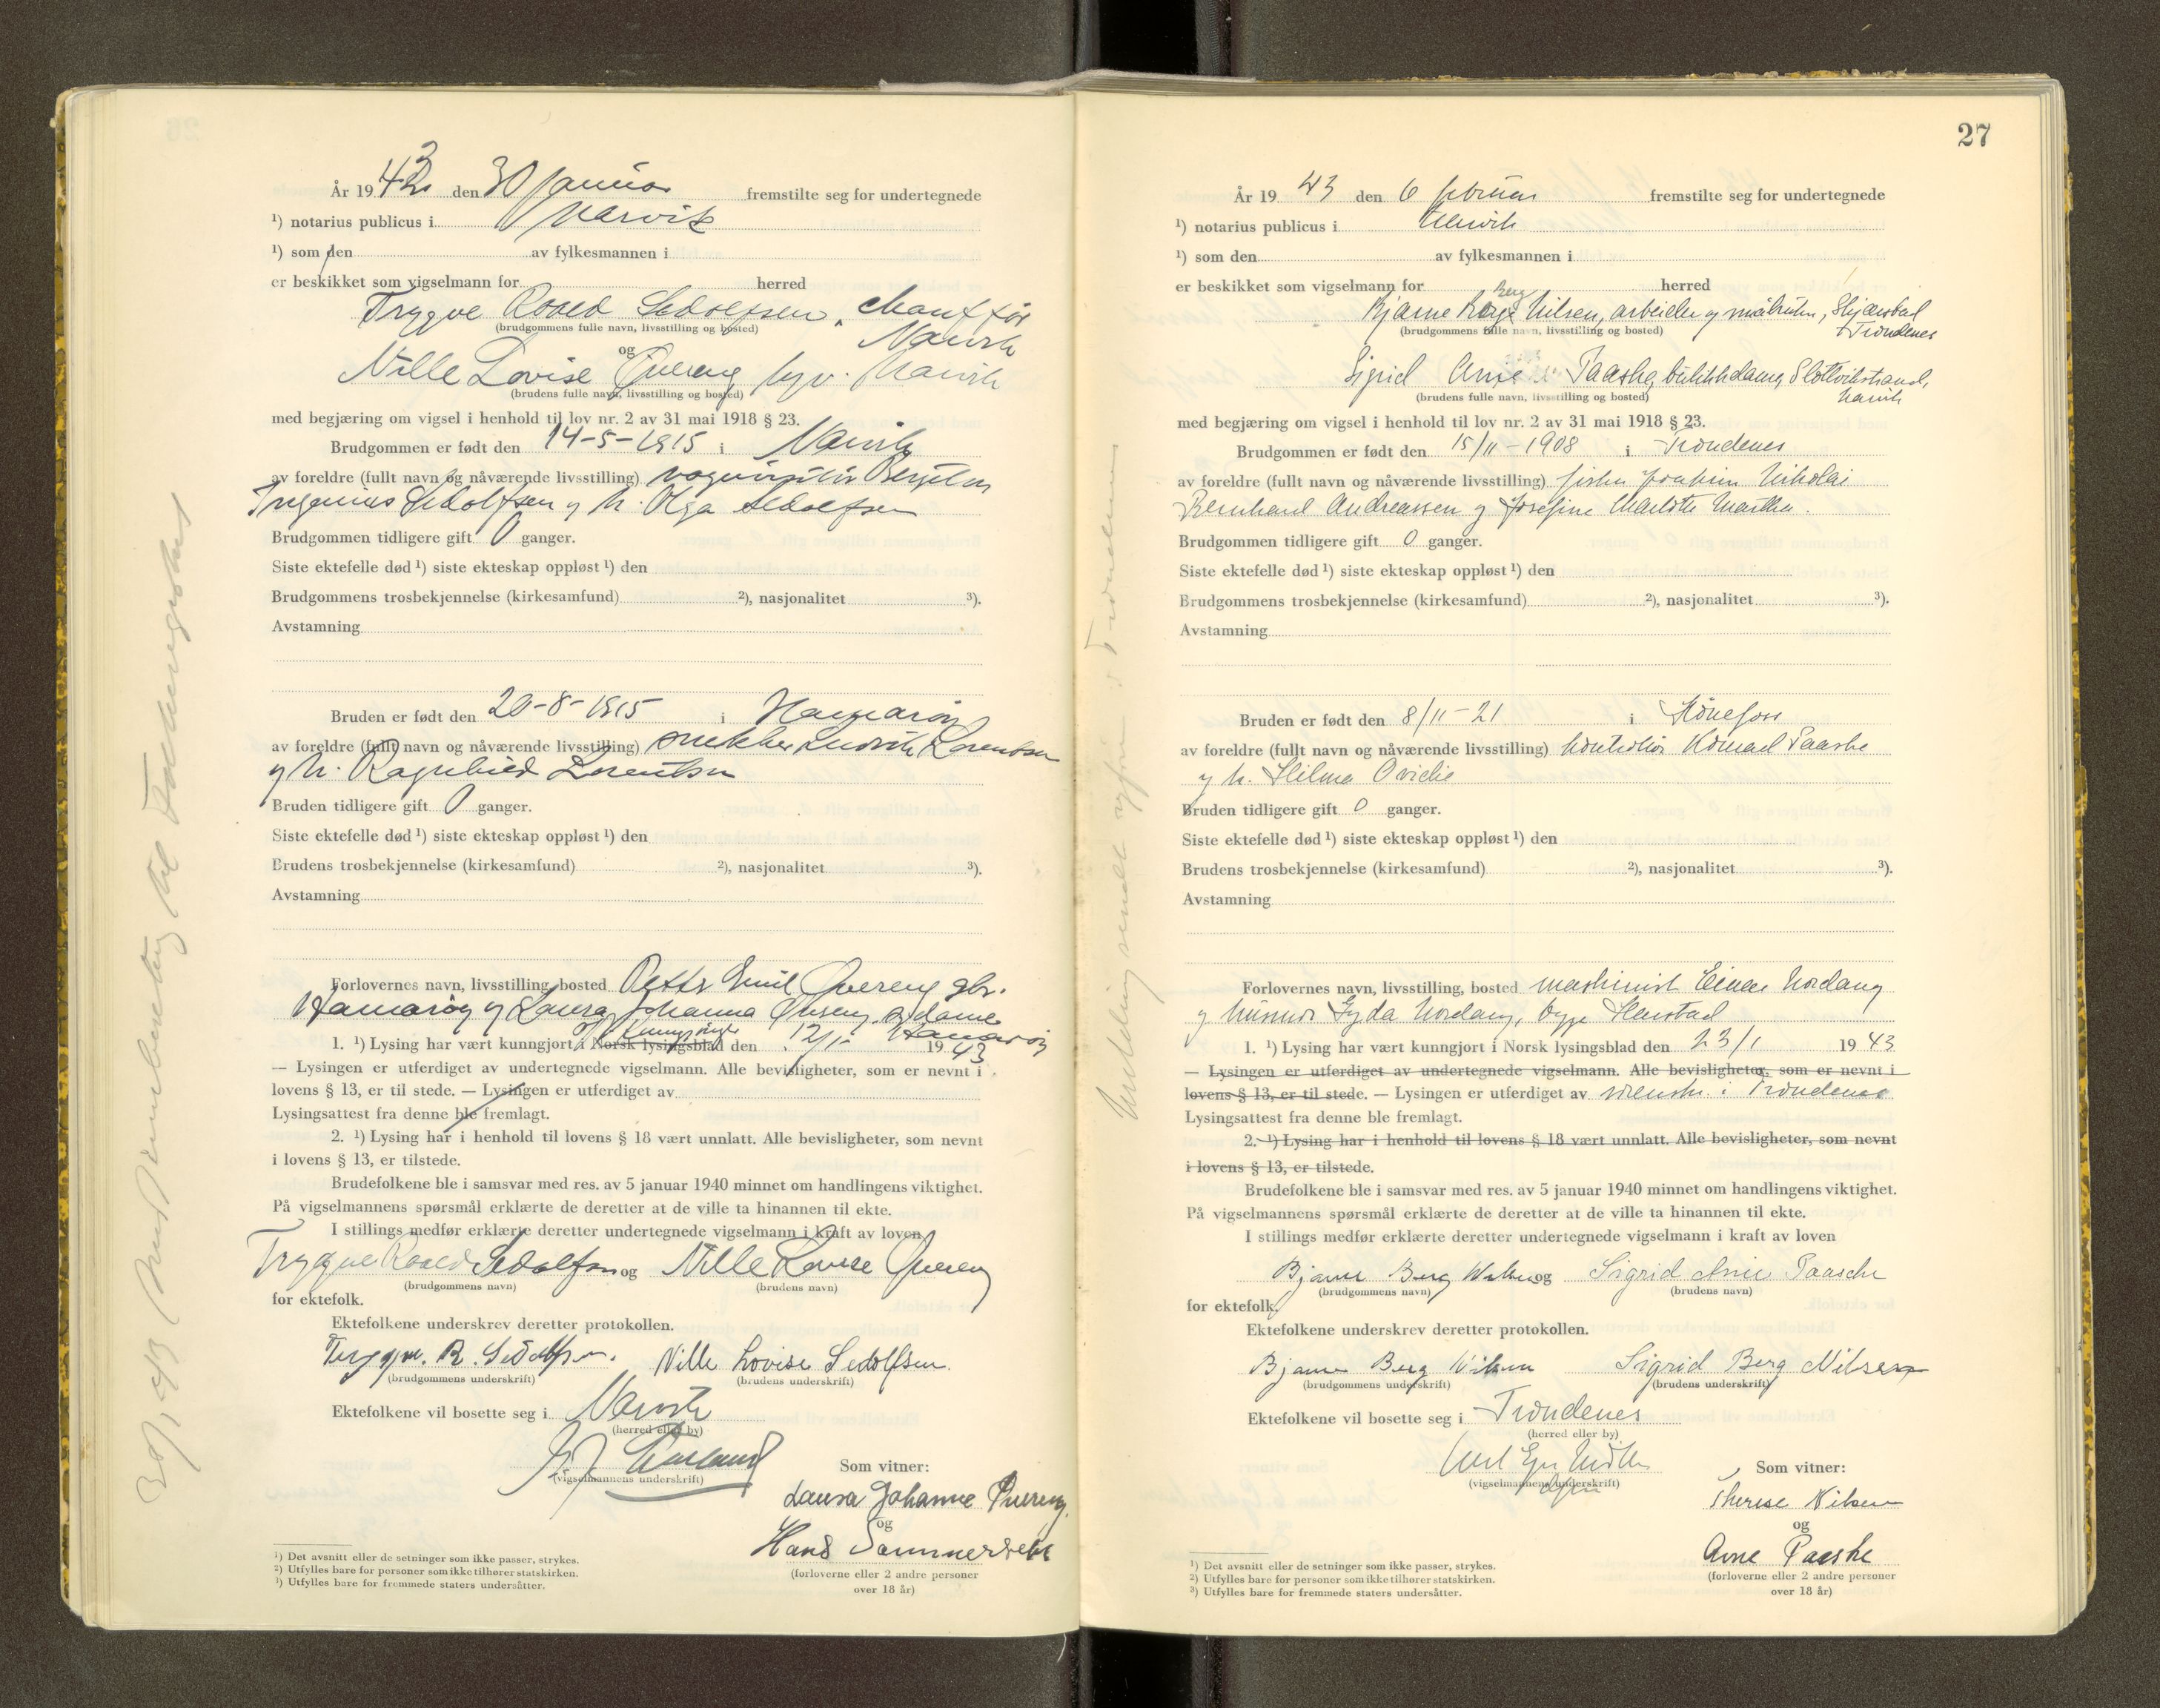 År 1943 den 30 januar fremstilte seg for undertegnede
¹) notarius publicus i Narvik
¹) som den av fylkesmannen i
er beskikket som vigselmann for herred
Trygve Roald Sedolfsen, chauffør
Narvik
(brudgommens fulle navn, livsstilling og bosted)
og
Nille Lovise Qvereng Narvik
(brudens fulle navn, livsstilling og bosted)
med begjæring om vigsel i henhold til lov nr. 2 av 31 mai 1918 § 23.
Brudgommen er født den 14-5-1915 i Narvik
av foreldre (fullt navn og nåværende livsstilling)
Sedolfsen og h. Olga Sedolfsen
Brudgommen tidligere gift 0 ganger.
Siste ektefelle død ¹) siste ekteskap oppløst ¹) den
Brudgommens trosbekjennelse (kirkesamfund) ²), nasjonalitet ³).
Avstamning
Bruden er født den 20-8-1915 i Hamarøy
av foreldre (fullt navn og nåværende livsstilling) snekker Ludvik Lorentsen
og h. Ragnhild Lorentsen
Bruden tidligere gift 0 ganger.
Siste ektefelle død ¹) siste ekteskap oppløst ¹) den
Brudens trosbekjennelse (kirkesamfund) ²), nasjonalitet ³).
Avstamning
Forlovernes navn, livsstilling, bosted Petter Emil Qvereng gbr.
Hamarøy og Laura Johanna Qvereng, Hamarøy
1. ¹) Lysing har vært kunngjort i Norsk lysingsblad den 12/1 1943
— Lysingen er utferdiget av undertegnede vigselmann. Alle bevisligheter, som er nevnt i
lovens § 13, er til stede. — Lysingen er utferdiget av
Lysingsattest fra denne ble fremlagt.
2. ¹) Lysing har i henhold til lovens § 18 vært unnlatt. Alle bevisligheter, som nevnt
i lovens § 13, er tilstede.
Brudefolkene ble i samsvar med res. av 5 januar 1940 minnet om handlingens viktighet.
På vigselmannens spørsmål erklærte de deretter at de ville ta hinannen til ekte.
I stillings medfør erklærte deretter undertegnede vigselmann i kraft av loven
Trygve Roald Sedolfsen og Nille Lovise Qvereng
(brudgommens navn) (brudens navn)
for ektefolk.
Ektefolkene underskrev deretter protokollen.
Trygve. R. Sedolfsen. Nille Lovise Sedolfsen.
(brudgommens underskrift) (brudens underskrift)
Ektefolkene vil bosette seg i Narvik
(herred eller by)
(vigselmannens underskrift)
Som vitner:
Laura Johanne Qvereng.
og
Hans
(forloverne eller 2 andre personer
over 18 år)
¹) Det avsnitt eller de setninger som ikke passer, strykes.
²) Utfylles bare for personer som ikke tilhører statskirken.
³) Utfylles bare for fremmede staters undersåtter.
30/1 43
27
År 1943 den 6 februar fremstilte seg for undertegnede
¹) notarius publicus i Narvik
¹) som den av fylkesmannen i
er beskikket som vigselmann for herred
Bjarne Berg Nilsen, arbeider
Trondenes
(brudgommens fulle navn, livsstilling og bosted)
Sigrid Anie Paaske, butikkdame,
Narvik
(brudens fulle navn, livsstilling og bosted)
med begjæring om vigsel i henhold til lov nr. 2 av 31 mai 1918 § 23.
Brudgommen er født den 15/11-1908 i Trondenes
av foreldre (fullt navn og nåværende livsstilling) fisker Joakim Nikolai
Bernhard Andreassen og Josefine Charlotte Martha.
Brudgommen tidligere gift 0 ganger.
Siste ektefelle død ¹) siste ekteskap oppløst ¹) den
Brudgommens trosbekjennelse (kirkesamfund) ²), nasjonalitet ³).
Avstamning
Bruden er født den 8/11-21 i Hønefoss
av foreldre (fullt navn og nåværende livsstilling) kontrollør Paaske
og h. Hilma Ovidie
Bruden tidligere gift 0 ganger.
Siste ektefelle død ¹) siste ekteskap oppløst ¹) den
Brudens trosbekjennelse (kirkesamfund) ²), nasjonalitet ³).
Avstamning
Forlovernes navn, livsstilling, bosted maskinist Einar Nordang
og hustru Gyda Nordang, Harstad
1. ¹) Lysing har vært kunngjort i Norsk lysingsblad den 23/1 1943
— Lysingen er utferdiget av undertegnede vigselmann. Alle bevisligheter, som er nevnt i
lovens § 13, er til stede. — Lysingen er utferdiget av sorenskr. i Trondenes
Lysingsattest fra denne ble fremlagt.
2. ¹) Lysing har i henhold til lovens § 18 vært unnlatt. Alle bevisligheter, som nevnt
i lovens § 13, er tilstede.
Brudefolkene ble i samsvar med res. av 5 januar 1940 minnet om handlingens viktighet.
På vigselmannens spørsmål erklærte de deretter at de ville ta hinannen til ekte.
I stillings medfør erklærte deretter undertegnede vigselmann i kraft av loven
Bjarne Berg Nilsen og Sigrid Anie Paaske
(brudgommens navn) (brudens navn)
for ektefolk.
Ektefolkene underskrev deretter protokollen.
Bjarne Berg Nilsen Sigrid Berg Nilsen
(brudgommens underskrift) (brudens underskrift)
Ektefolkene vil bosette seg i Trondenes
(herred eller by)
(vigselmannens underskrift)
Som vitner:
Therese Nilsen
og
Arne Paaske
(forloverne eller 2 andre personer
over 18 år)
¹) Det avsnitt eller de setninger som ikke passer, strykes.
²) Utfylles bare for personer som ikke tilhører statskirken.
³) Utfylles bare for fremmede staters undersåtter.
Melding sendt i Trondenes